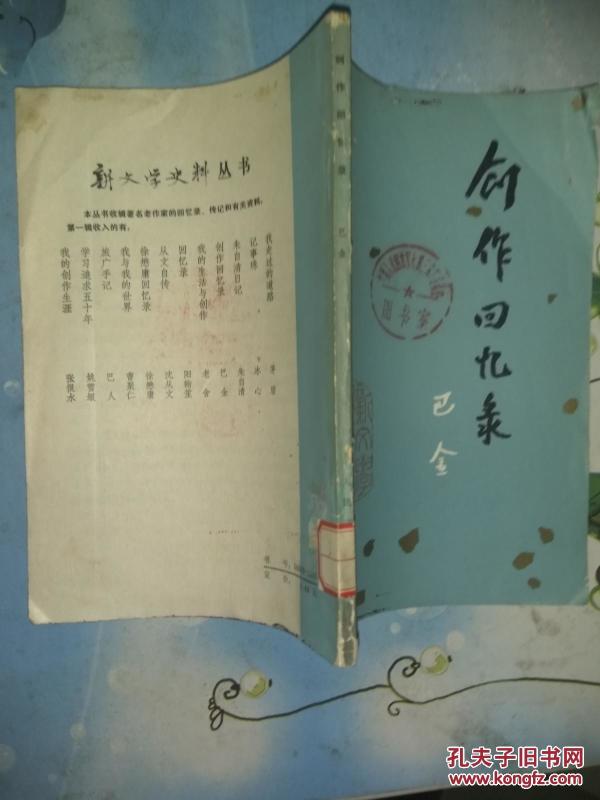 创作回忆录
巴金
图书室
创作回忆录
巴金
新文学史料丛书
本丛书收辑著名老作家的回忆录、传记和有关资料,
第一辑收入的有:
我走过的道路 茅盾
记事珠 冰心
朱自清日记 朱自清
创作回忆录 巴金
我的生活与创作 老舍
回忆录 阳翰笙
从文自传 沈从文
徐懋庸回忆录 徐懋庸
我与我的世界 曹聚仁
旅广手记 巴人
学习追求五十年 姚雪垠
我的创作生涯 张恨水
书号
定价
孔夫子旧书网
www.kongfz.com